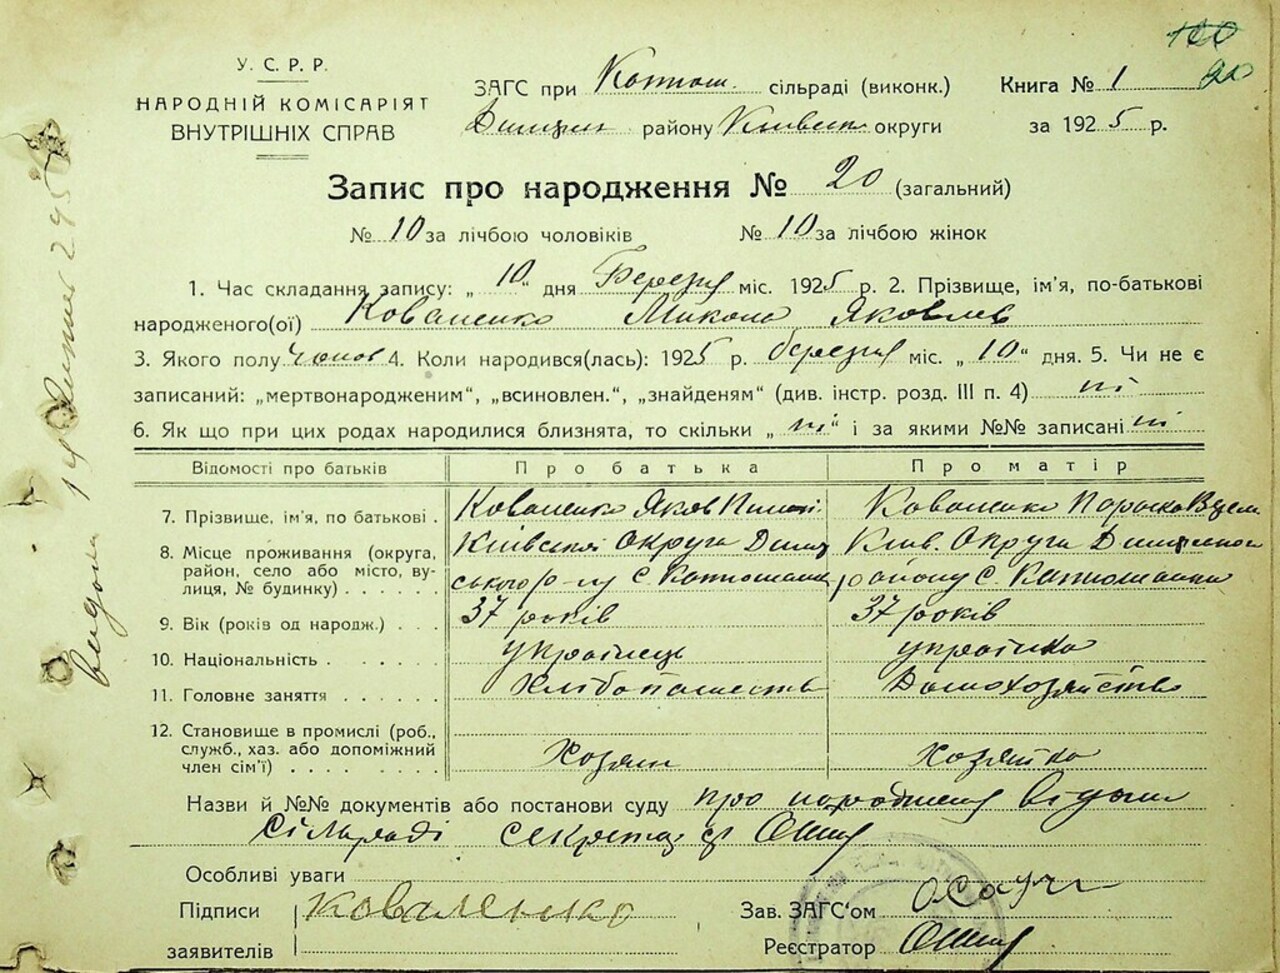 У. С. Р. Р.
НАРОДНІЙ КОМІСАРІЯТ
ВНУТРІШНІХ СПРАВ
ЗАГС при Котюж. сільраді (виконк.)
Димерск району Київск округи
Книга № 1
20
за 1925 р.
Запис про народження № 20 (загальний)
№ 10 за лічбою чоловіків № 10 за лічбою жінок
1. Час складання запису: „10“ дня Березня міс. 1925 р. 2. Прізвище, ім'я, по-батькові
народженого(ої) Коваленко Микола Яковлев
3. Якого полу чолов 4. Коли народився(лась): 1925 р. березня міс. „10“ дня. 5. Чи не є
записаний: „мертвонародженим“, „всиновлен.“, „знайденям“ (див. інстр. розд. III п. 4) ні
6. Як що при цих родах народилися близнята, то скільки „ні“ і за якими №№ записані ні
Відомості про батьків Про батька Про матір
7. Прізвище, ім'я, по батькові . Коваленко Яков Коваленко Параска
8. Місце проживання (округа, район, село або місто, вулиця, № будинку) . . . . . .
Київської Округа Димер Київ. Округа Димерського
ського р-ну С. району С.
9. Вік (років од народж.) . . . 37 років 37 років
10. Національність . . . . . . українець українка
11. Головне заняття . . . . . Хлібопашество Домохозяйство
12. Становище в промислі (роб., служб., хаз. або допоміжний член сім'ї) . . . . . . . .
Хозяин Хозяйка
Назви й №№ документів або постанови суду про народження відом
сільраді секретар
Особливі уваги
Підписи Коваленко
заявителів
Зав. ЗАГС'ом
Реєстратор
видана 14